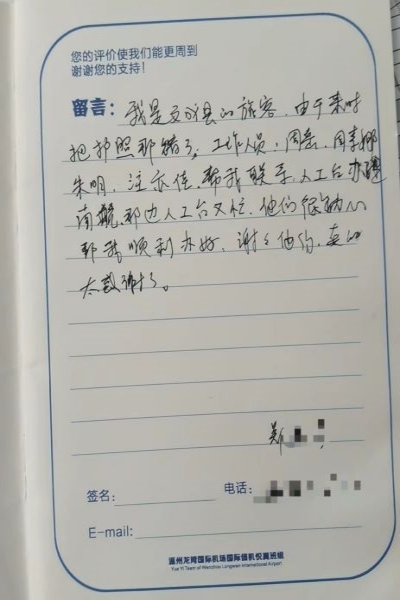 您的评价使我们能更周到
谢谢您的支持！
留言：我是文成县的旅客，由于来时
把护照那错了，工作人员：周
朱明，汪亦佳，帮我联系人工台办理
南航，那边人工台又忙，他们很耐心
帮我顺利办好，谢谢他们，真的
太感谢了。
郑
签名：
电话：
E-mail:
温州龙湾国际机场国际值机悦真班组
Yue Yi Team of Wenzhou Longwan International Airport